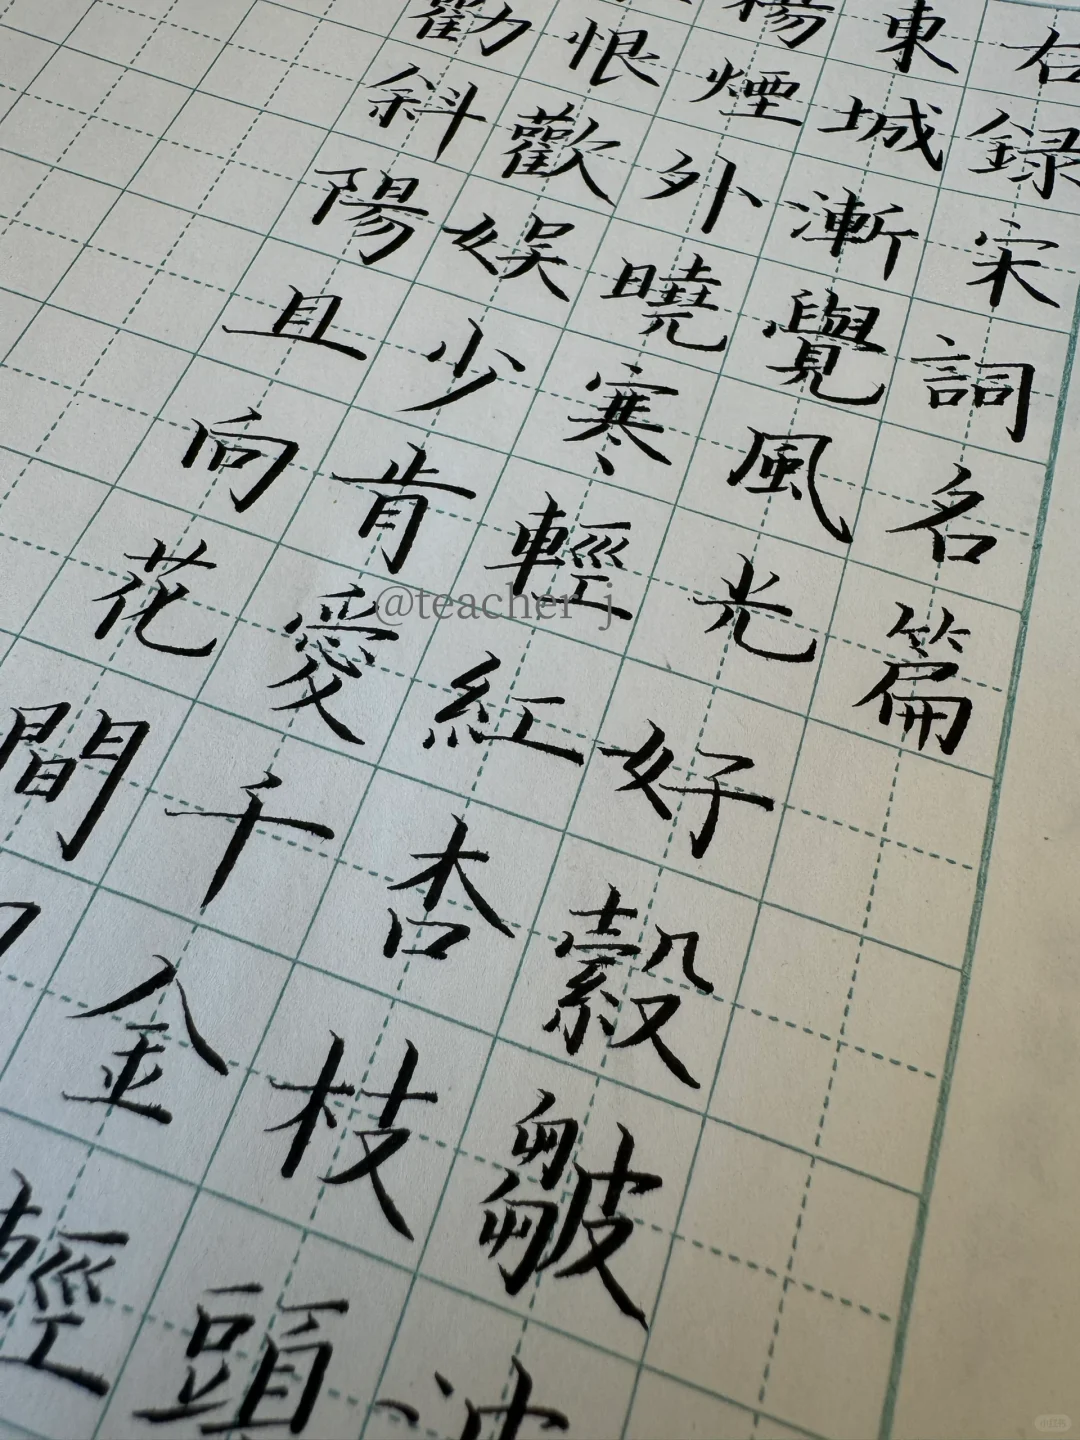 右録宋詞名篇
東城漸覺風光好縠皺波
楊煙外曉寒輕紅杏枝頭
恨歡娛少肯愛千金輕
勸斜陽且向花間
@teacher j
小红书